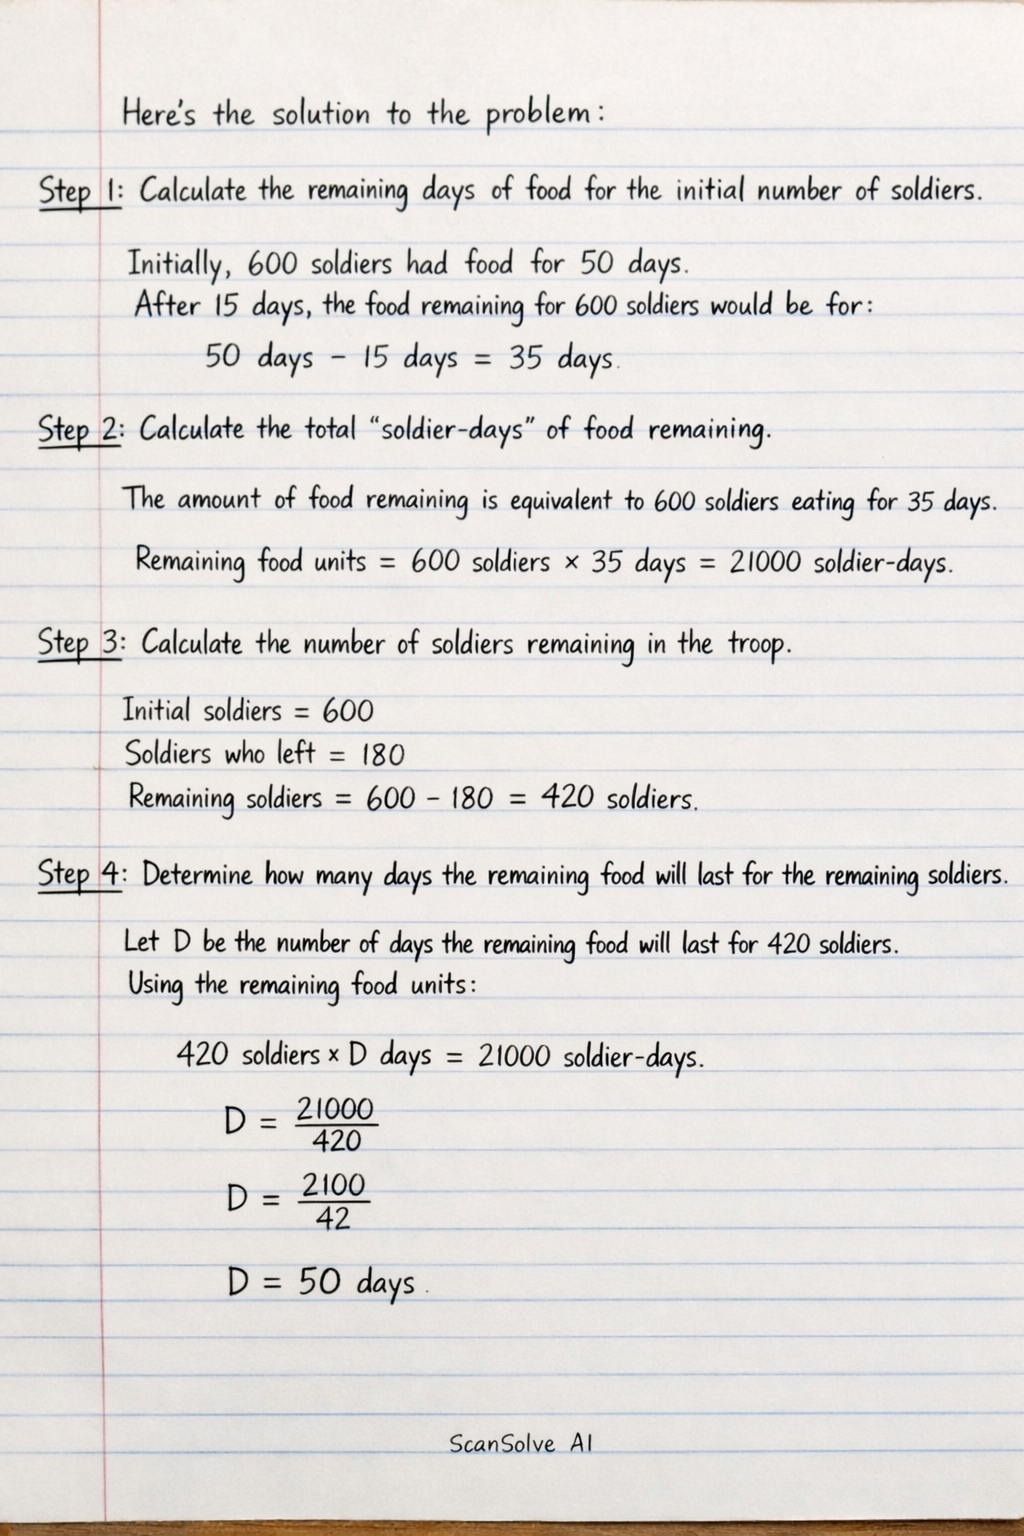 Here's the solution to the problem:
Step 1: Calculate the remaining days of food for the initial number of soldiers.
Initially, 600 soldiers had food for 50 days.
After 15 days, the food remaining for 600 soldiers would be for:
50 days - 15 days = 35 days.
Step 2: Calculate the total "soldier-days" of food remaining.
The amount of food remaining is equivalent to 600 soldiers eating for 35 days.
Remaining food units = 600 soldiers × 35 days = 21000 soldier-days.
Step 3: Calculate the number of soldiers remaining in the troop.
Initial soldiers = 600
Soldiers who left = 180
Remaining soldiers = 600 - 180 = 420 soldiers.
Step 4: Determine how many days the remaining food will last for the remaining soldiers.
Let D be the number of days the remaining food will last for 420 soldiers.
Using the remaining food units:
420 soldiers × D days = 21000 soldier-days.
D = 21000/420
D = 2100/42
D = 50 days.
ScanSolve AI